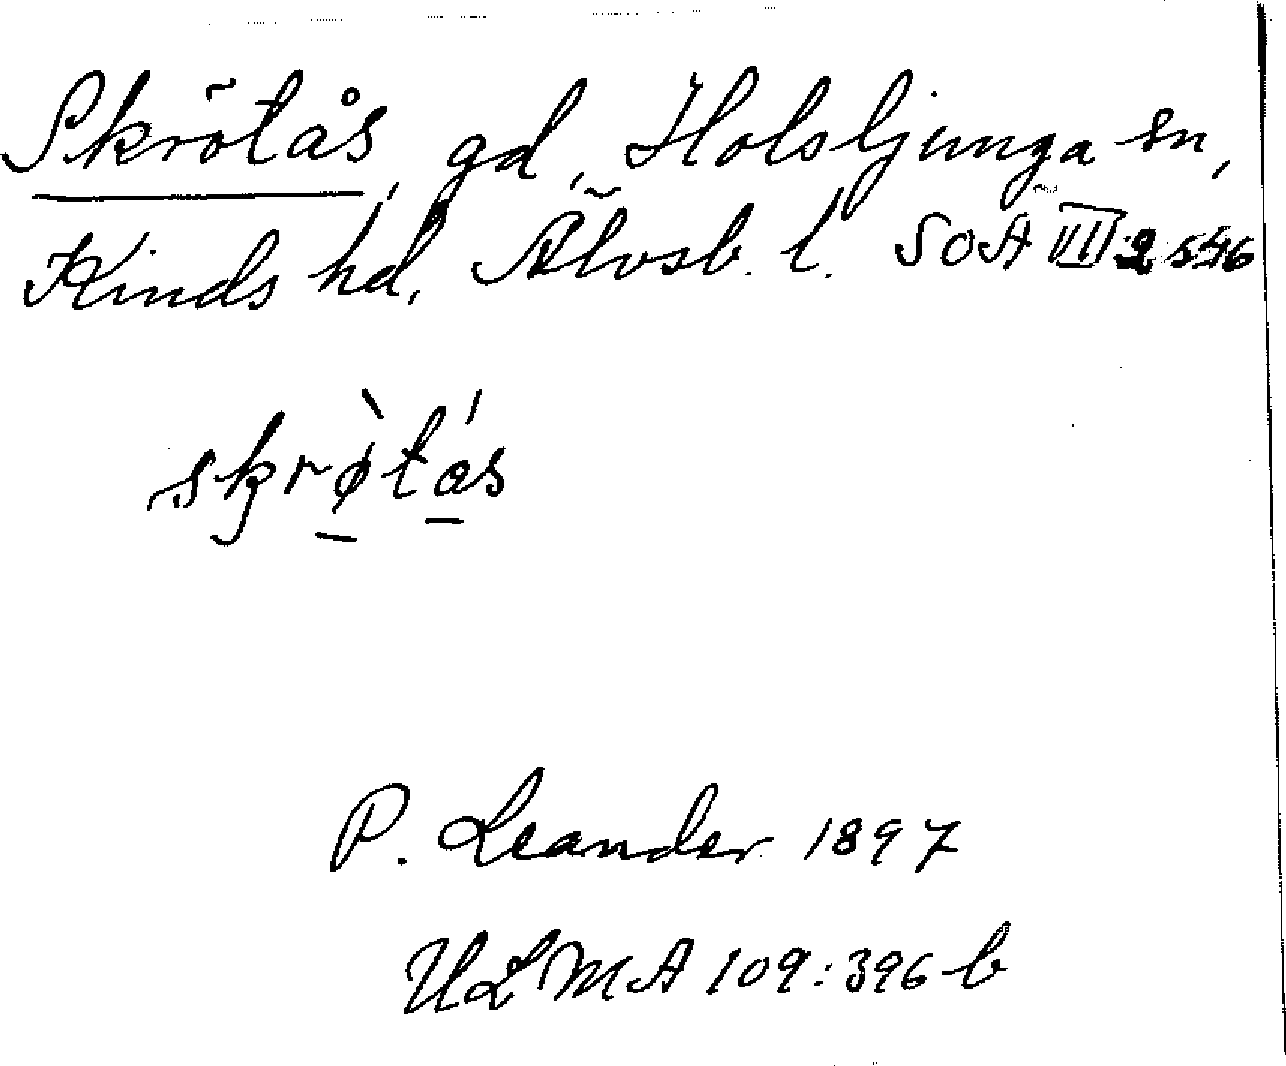 Skrötås, gd, Holsljunga sn,
Kinds hd, Älvsb. l. SOÄ VII:2 s 46
skrø̀tás
P. Leander 1897
ULMA 109:396 b